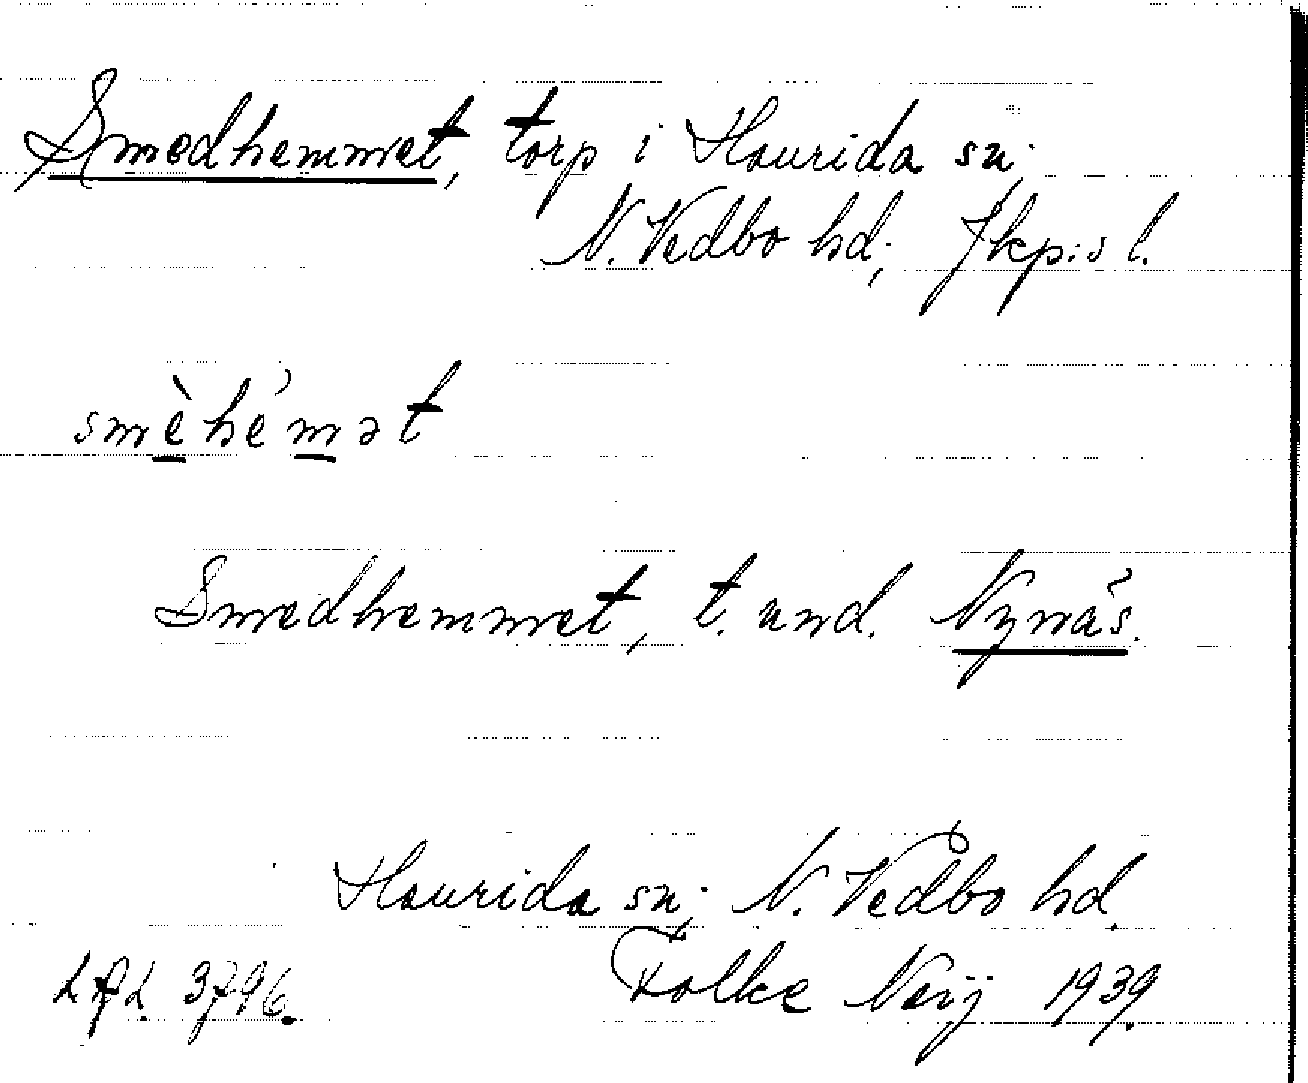 Smedhemmet, torp i Haurida sn;
N. Vedbo hd; Jkp:s l.
smèhémət
Smedhemmet, t. und. Nynäs.
Haurida sn; N. Vedbo hd.
3796. Folke Neij 1939.